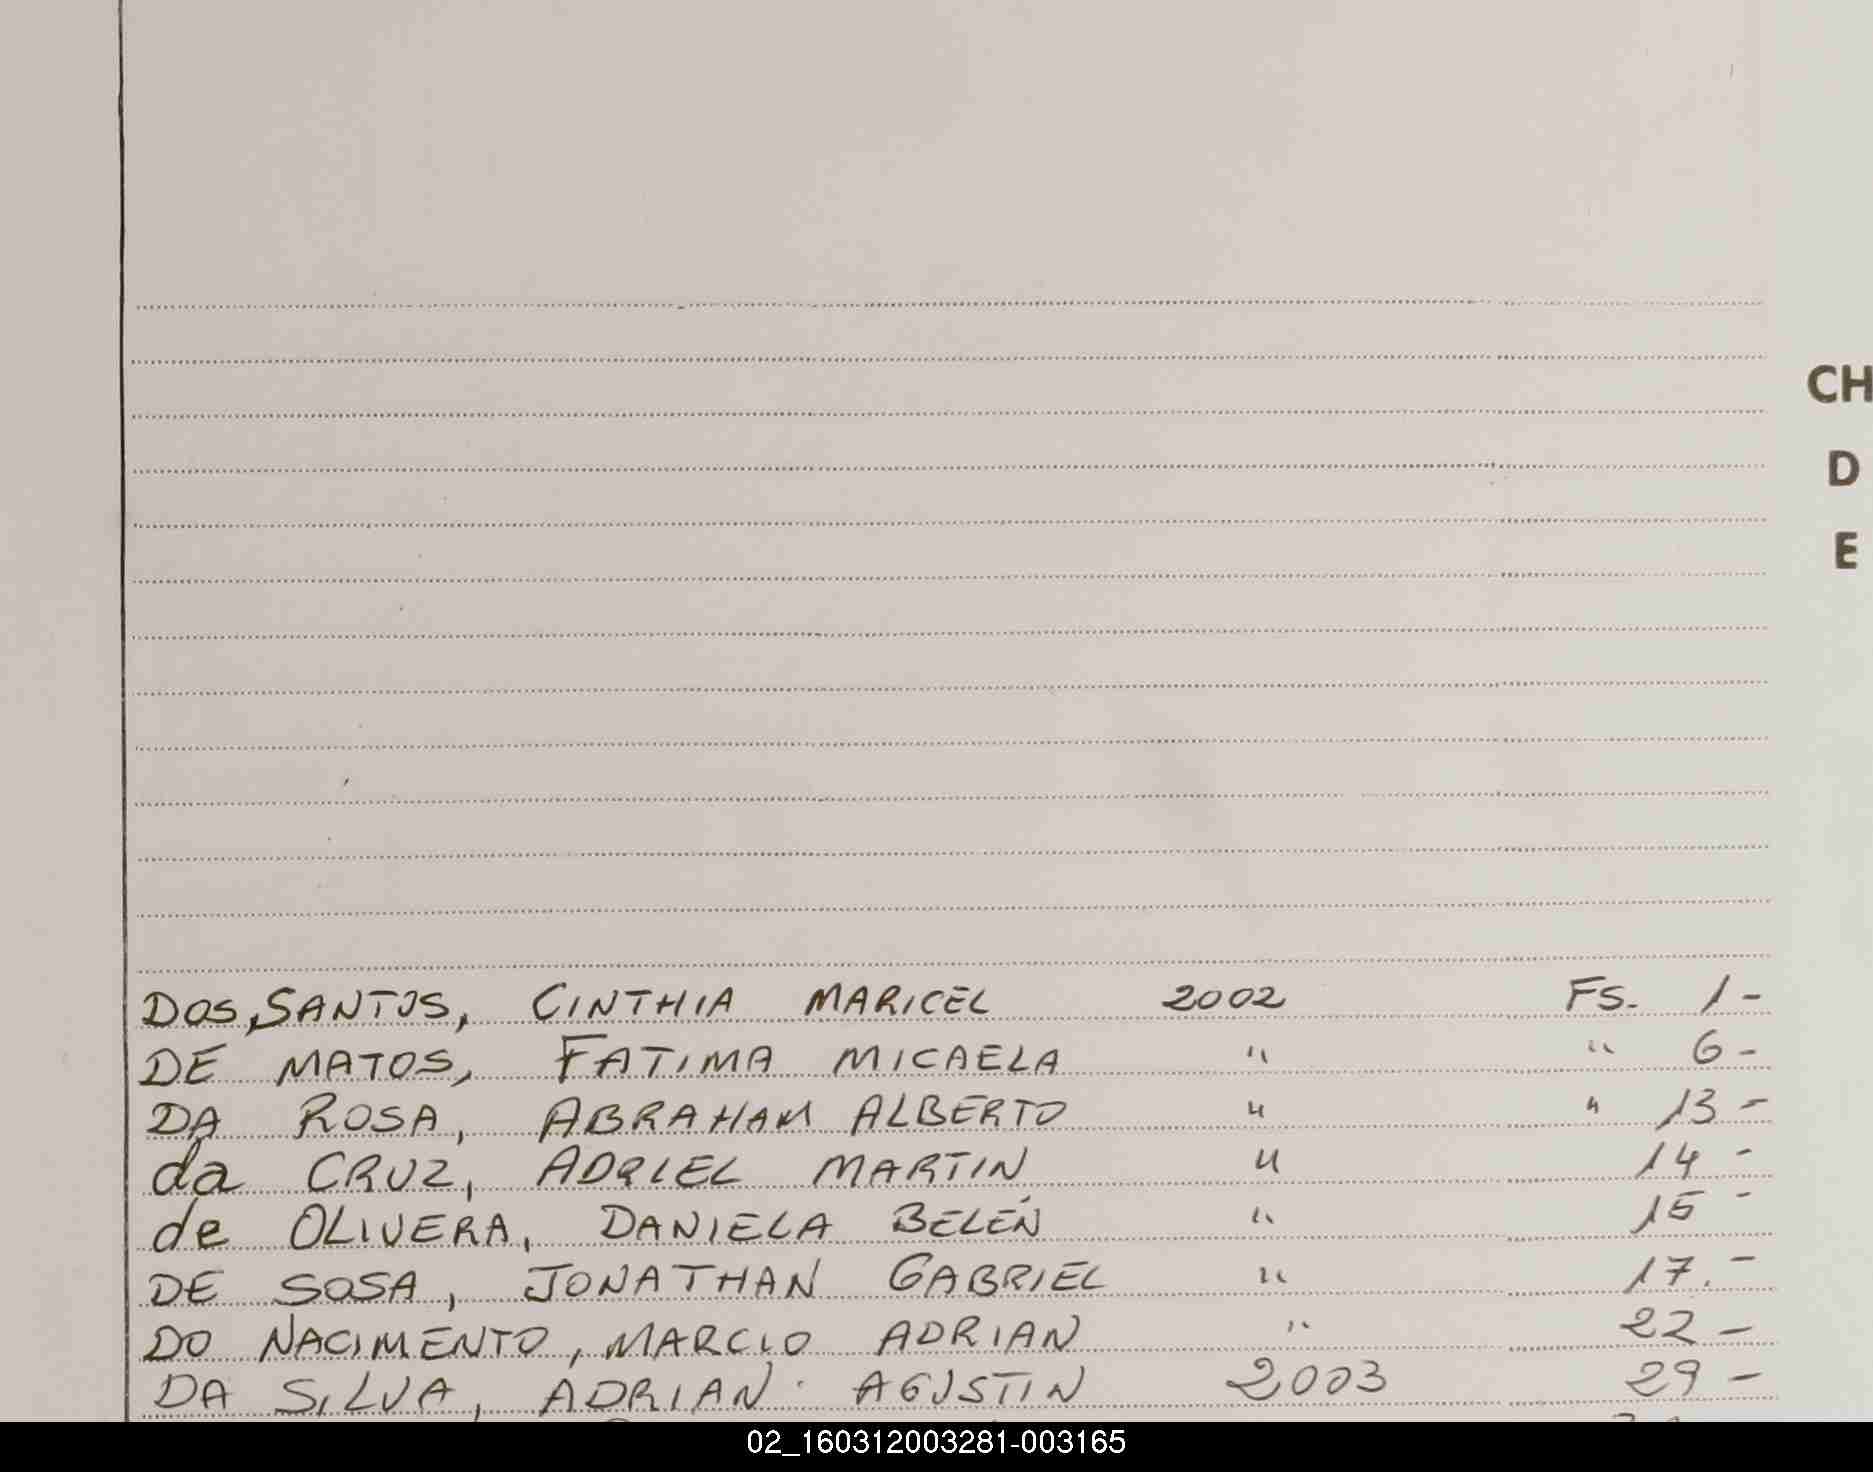 CH
D
E
DOS, SANTOS, CINTHIA MARICEL 2002 FS. 1-
DE MATOS, FATIMA MICAELA " " 6-
DA ROSA, ABRAHAM ALBERTO " " 13-
da CRUZ, ADRIEL MARTIN " 14-
de OLIVERA, DANIELA BELÉN " 15-
DE SOSA, JONATHAN GABRIEL " 17.-
DO NACIMENTO, MARCIO ADRIAN " 22-
DA SILVA, ADRIAN AGUSTIN 2003 29-
02_160312003281-003165